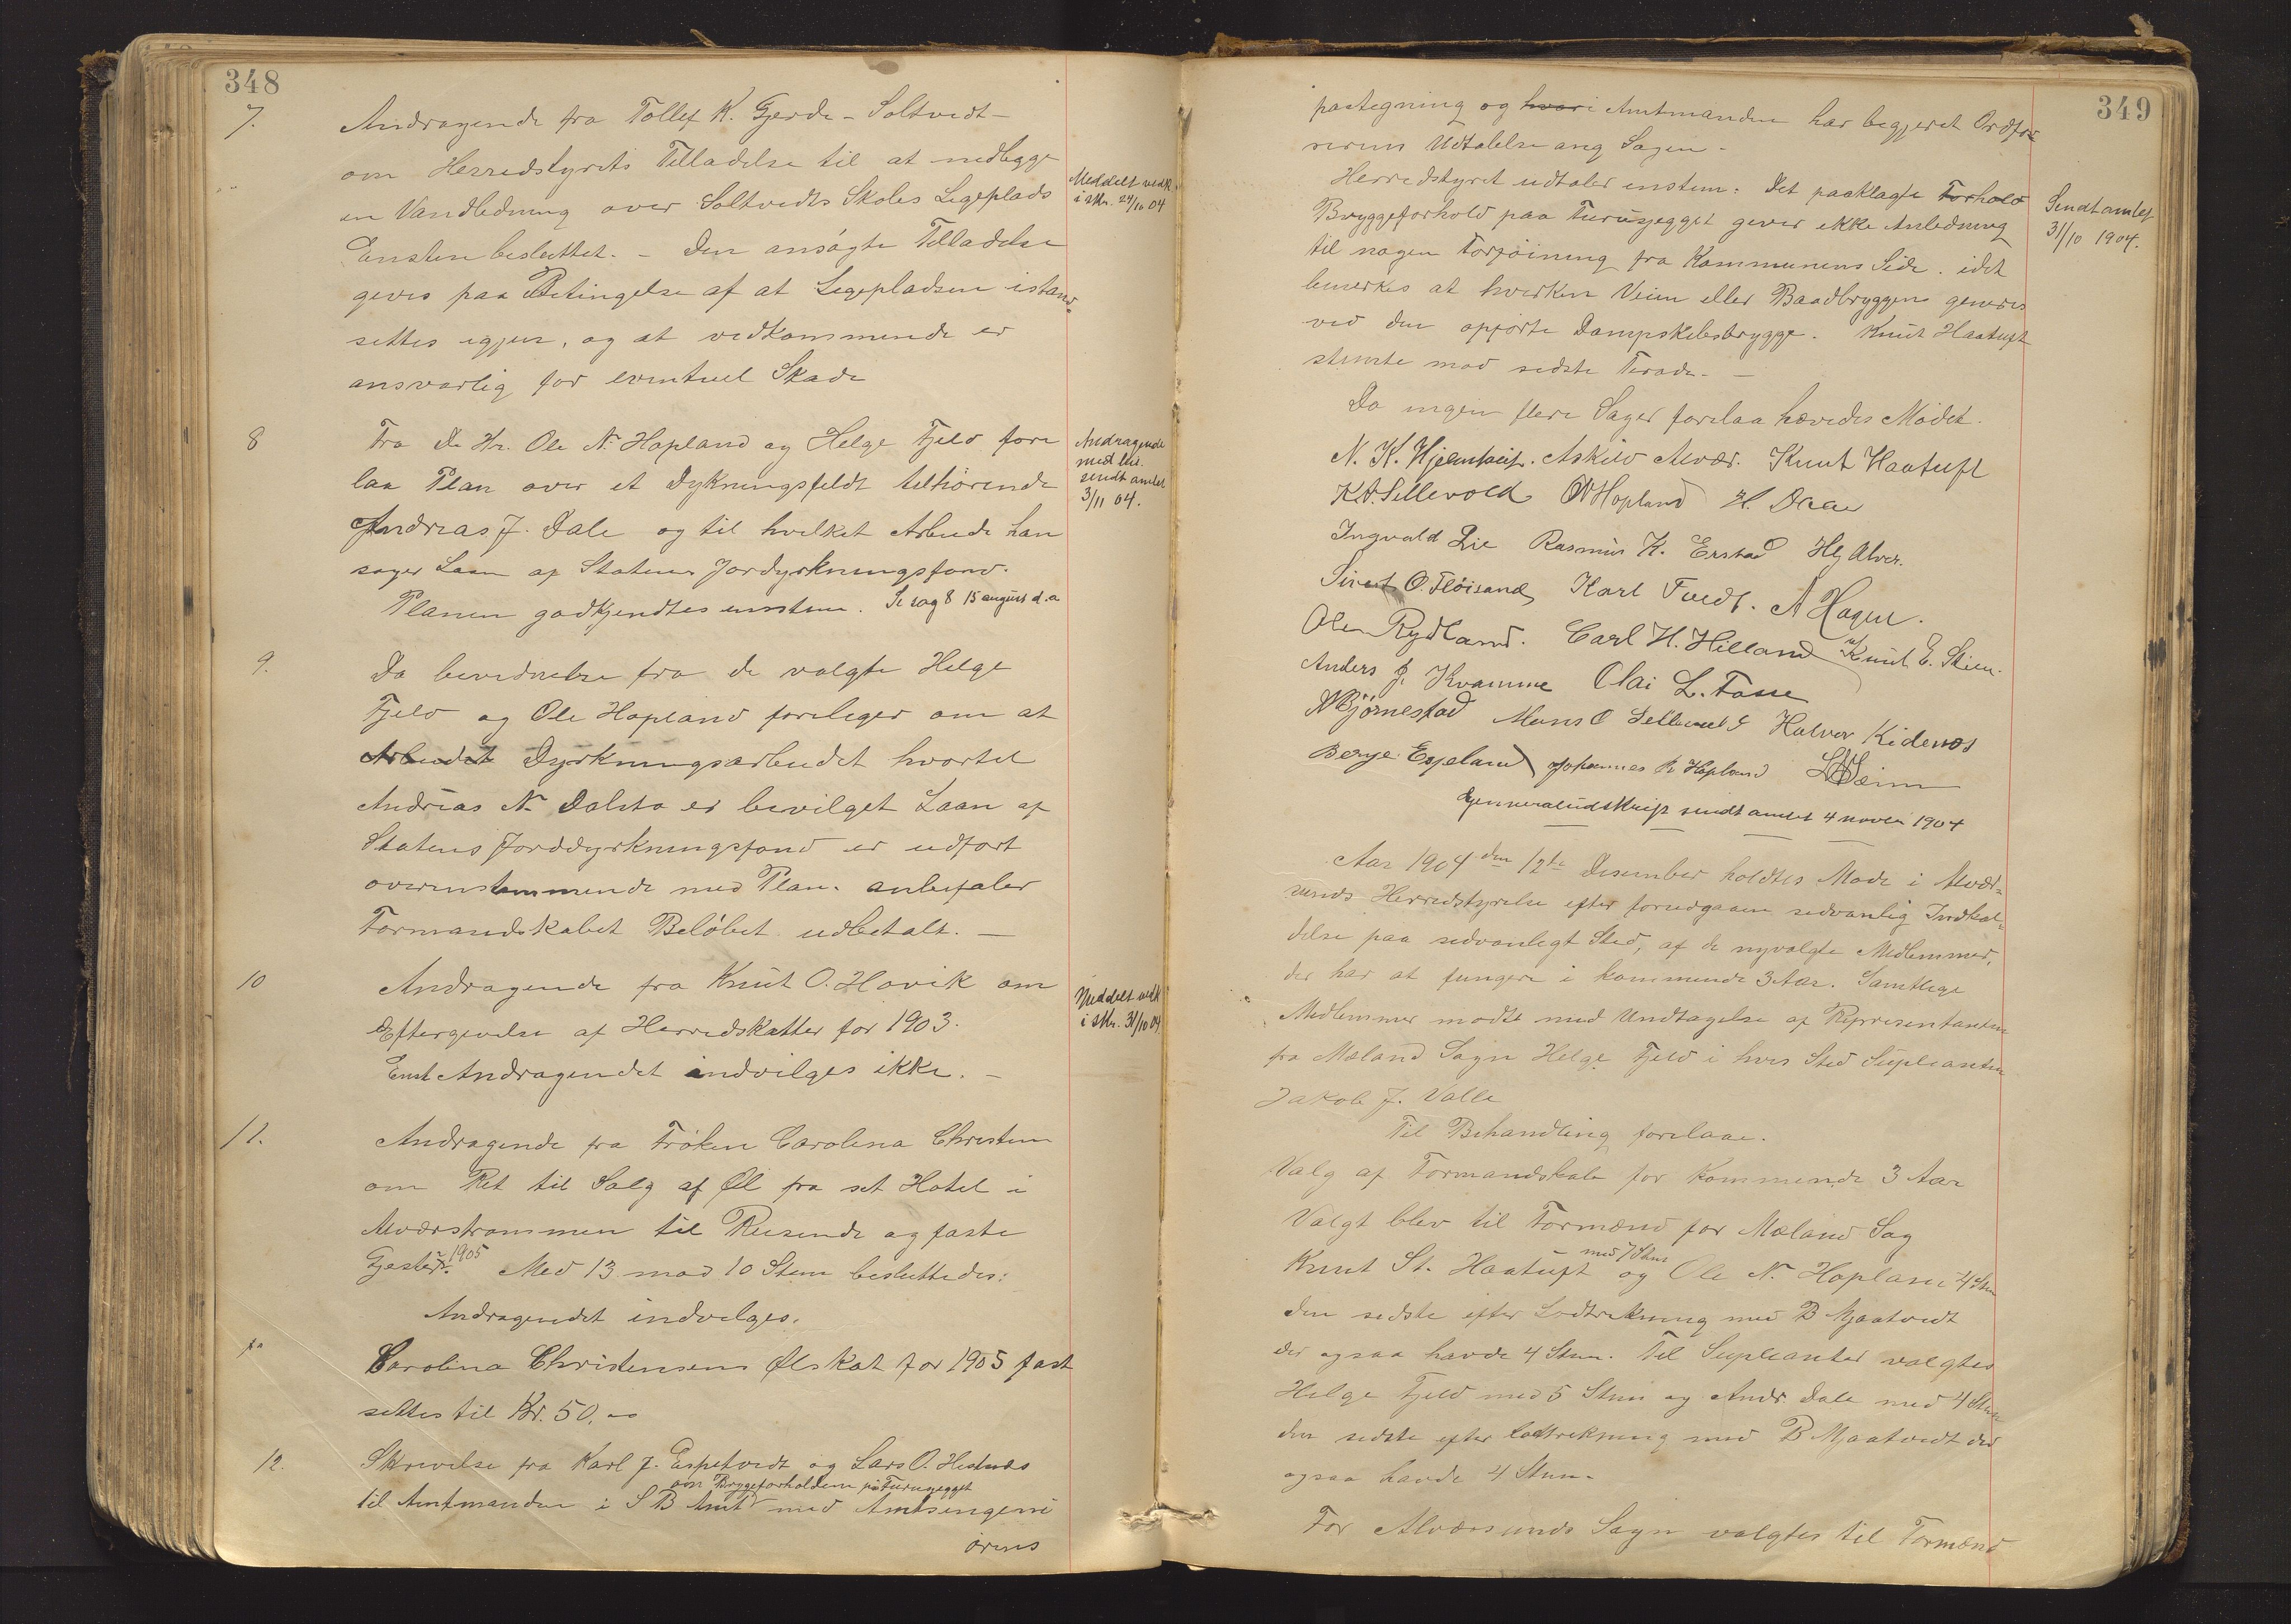 348
7. Andragende fra Tollef K. Gjerde - Soltvedt -
om Herredstyrets Tilladelse til at nedlegge
en Vandledning over Soltvedts Skoles Legeplads
Meddelt vedk.
i skr. 24/10 04
Ensten besluttet. - Den ansøgte Tilladelse
gives paa Betingelse af at Legepladsen istand-
settes igjen, og at vedkommende er
ansvarlig for eventuel Skade
8 Fra De Hr. Ole N. Hopland og Helge Fjeld fore
laa Plan over et Dykningsfeldt tilhørende
Andreas J. Dale og til hvilket Arbeide han
søger Laan af Statens Jordyrkningsfond.
Planen godkjendtes enstem. Se sag 8 15 august d.a
Andragende
med
sendt amtet
3/11 04.
9. Da bevidnelse fra de valgte Helge
Fjeld og Ole Hopland foreliger om at
Arbeidet Dyrkningsarbeidet hvortil
Andreas N. Dalsto er bevilget Laan af
Statens Jorddyrkningsfond er udført
overenstemmende med Plan. anbefaler
Formandskabet Beløbet udbetalt. -
10 Andragende fra Knut O. Hovik om
Eftergivelse af Herredskatter for 1903.
Enst Andragendet indvilges ikke. -
Meddelt vedk
i skr. 31/10 04
11. Andragende fra Frøken Carolina Christensen
om Ret til Salg af Øl fra set Hotel i
Alværstrømmen til Reisende og faste
Gjester 1905. Med 13 mod 10 Stem besluttedes:
Andragendet indvilges.
Carolina Christensens Ølskat for 1905 fast
settes til Kr. 50.00
12. Skrivelse fra Karl J. Espetvedt og Lars O. Hednes
om Bryggeforholdene på Furuskjegget
til Amtmanden i S B Amt med Amtsingeni
ørens
349
paategning og hvori Amtmanden har begjeret Ordfø
rerens Udtalelse ang Sagen -
Herredstyret udtaler enstem: Det paaklagte Forhold
Bryggeforhold paa Furuskjegget giver ikke Anledning
til nogen Forføining fra Kommunens Side. idet
bemerkes at hverken Veien eller Baadbryggen generes
ved den opførte Dampskibsbrygge. Knut Haatuft
stemte mod sidste Tirade. -
Sendt amtet
31/10 1904.
Da ingen flere Sager forelaa hævedes Mødet.
N. K. Hjelmtveit. Askild Alvær. Knut Haatuft
K A. Sellevold ON Hopland H. Draa
Ingvald Lie Rasmus K. Erstad Hj Alver.
Sivert O. Fløisand Karl Tvedt. A Hagen.
Ole Rydland. Carl H. Hilland Knut E. Skien.
Anders J. Kvamme Olai L. Fosse
N Bjørnestad Mons O Sellevold Halvor Kidenes
Berge Espeland Johannes R Hopland L A Seim
Generaludskrift sendt amtet 4 novbr 1904
Aar 1904 den 12te Desember holdtes Møde i Alvær-
sunds Herredstyrelse efter forudgaaen sedvanlig Indkal-
delse paa sedvanlegt Sted, af de nyvalgte Medlemmer,
der har at fungere i kommende 3 Aar. Samtlege
Medlemmer mødte med Undtagelse af Representanten
fra Mæland Sogn Helge Fjeld i hvis Sted Supleanten
Jakob J. Valle
Til Behandling forelaae.
Valg af Formandskab for kommende 3 Aar
Valgt blev til Formænd for Mæland Sog
Knut St. Haatuft med 7 Stem og Ole N. Hopland 4 Stem
den sidste efter Lodtrekning med B Mjaatvedt
der ogsaa havde 4 Stem. Til Supleanter valgtes
Helge Fjeld med 5 Stem og Andr. Dale med 4 Stem
den sidste efter lodtrekning med B Mjaatvedt der
ogsaa havde 4 Stem.
For Alværsunds Sogn valgtes til Formænd